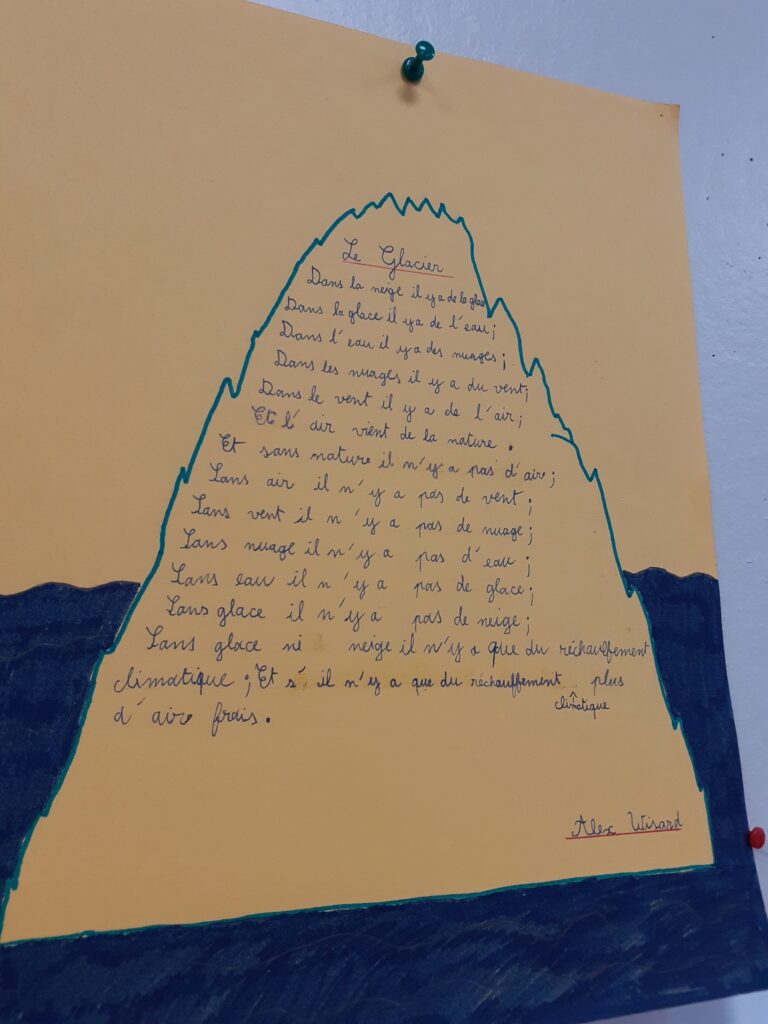 Le Glacier
Dans la neige il y a de la glace
Dans la glace il y a de l'eau;
Dans l'eau il y a des nuages;
Dans les nuages il y a du vent;
Dans le vent il y a de l'air;
Et l'air vient de la nature.
Et sans nature il n'y a pas d'air;
Sans air il n'y a pas de vent;
Sans vent il n'y a pas de nuage;
Sans nuage il n'y a pas d'eau;
Sans eau il n'y a pas de glace;
Sans glace il n'y a pas de neige;
Sans glace ni neige il n'y a que du réchauffement
climatique; Et s'il n'y a que du réchauffement plus
climatique
d'air frais.
Alex Wisard